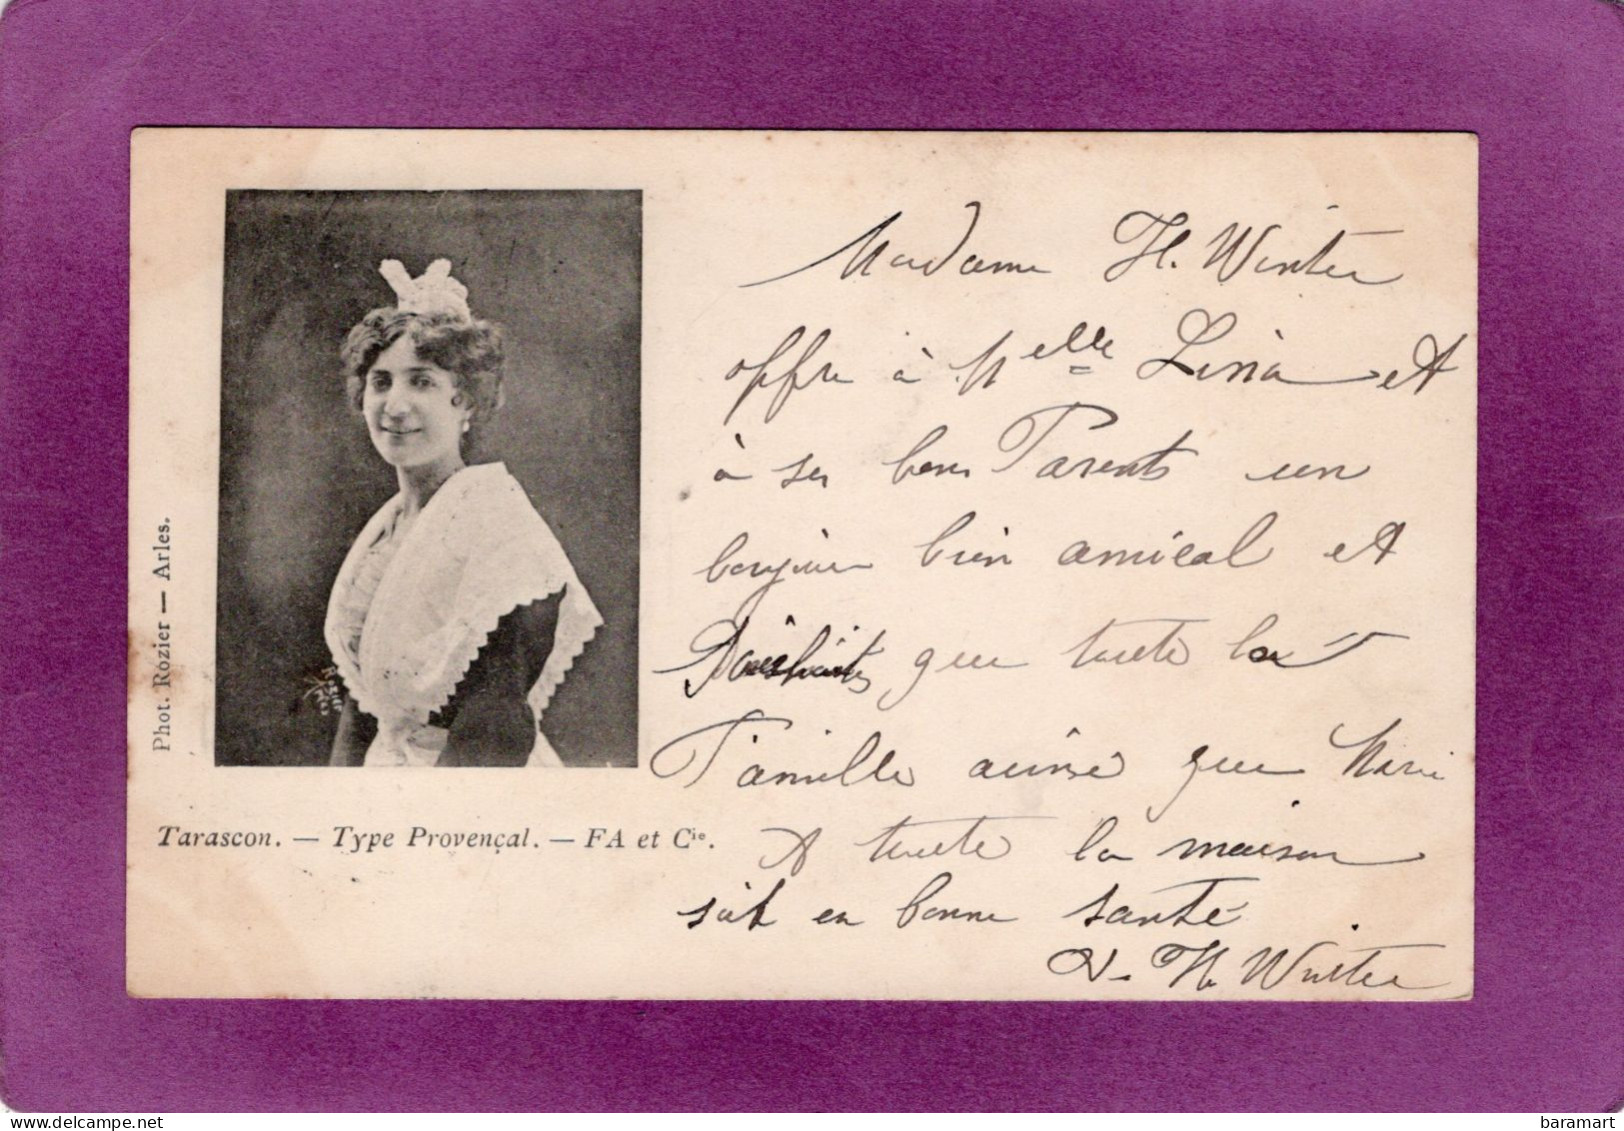 Madame H. Winter
offre à Melle Lina et
à ses bons Parents un
bonjour bien amical et
que toute la
Famille ainsi que Marie
et toute la maison
soit en bonne santé
V. H. Winter
Phot. Rozier — Arles.
Tarascon. — Type Provençal. — FA et Cie.
delcampe.net
baramart